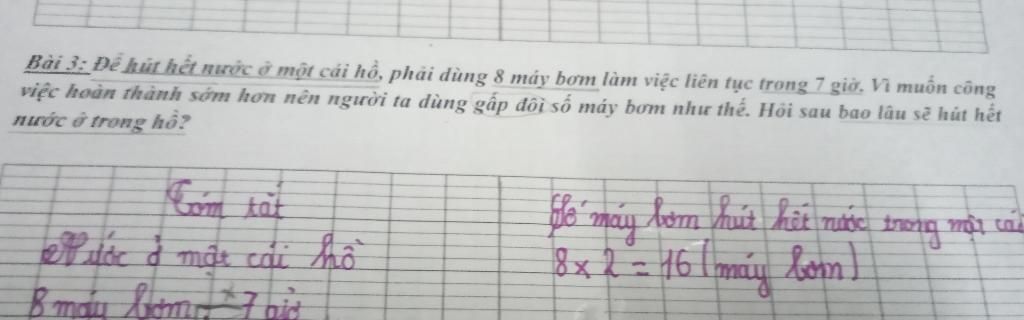 Bài 3: Để hút hết nước ở một cái hồ, phải dùng 8 máy bơm làm việc liên tục trong 7 giờ. Vì muốn công
việc hoàn thành sớm hơn nên người ta dùng gấp đôi số máy bơm như thế. Hỏi sau bao lâu sẽ hút hết
nước ở trong hồ?
Tóm tắt
Nước ở một cái hồ
8 máy bơm: 7 giờ
Số máy bơm hút hết nước trong một cái
8 x 2 = 16 (máy bơm)